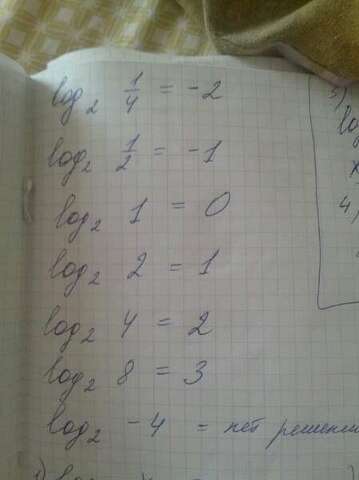 log₂ 1/4 = -2
log₂ 1/2 = -1
log₂ 1 = 0
log₂ 2 = 1
log₂ 4 = 2
log₂ 8 = 3
log₂ -4 = нет решени
5)
4)